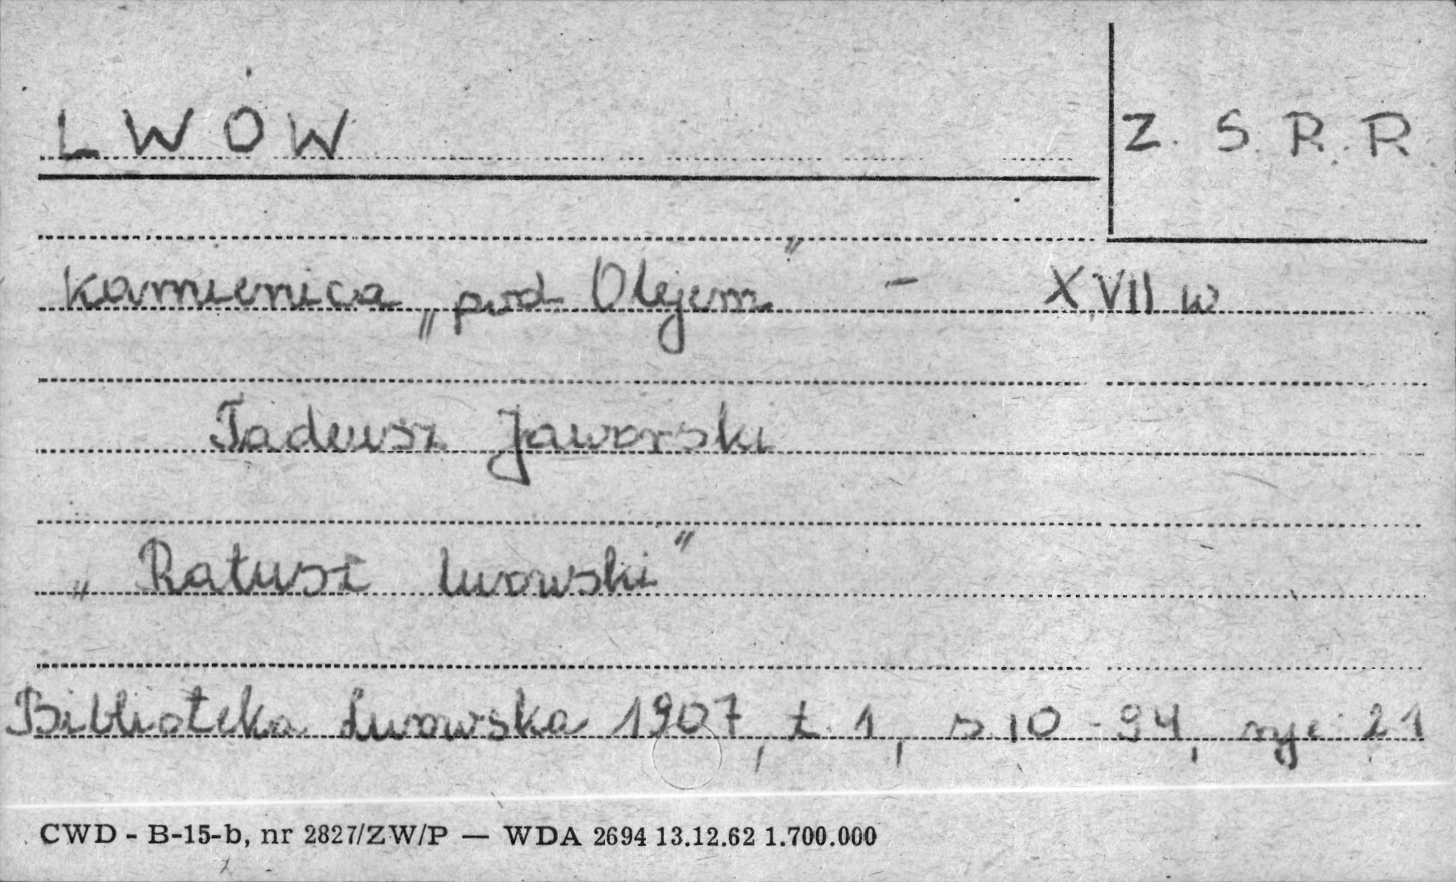 LWÓW
Z. S. R. R.
kamienica „pod Olejem" - XVII w
Tadeusz Jaworski
„Ratusz lwowski"
Biblioteka Lwowska 1907, t. 1, s 10-94, ryc 21
CWD - B-15-b, nr 2827/ZW/P — WDA 2694 13.12.62 1.700.000